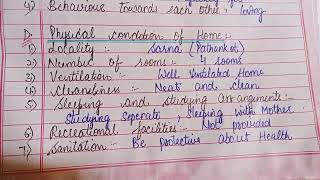 4) Behaviour towards each other, loving
D. Physical condition of Home:-
1) Locality:- Sarna (Pathankot)
2) Number of rooms:- 4 rooms
3) Ventilation:- Well Ventilated Home
4) Cleanliness:- Neat and clean
5) Sleeping and studying arrangements:-
Studying Seperate, Sleeping with Mother.
6) Recreational facilities:- Not provided
7) Sanitation:- Be protective about Health